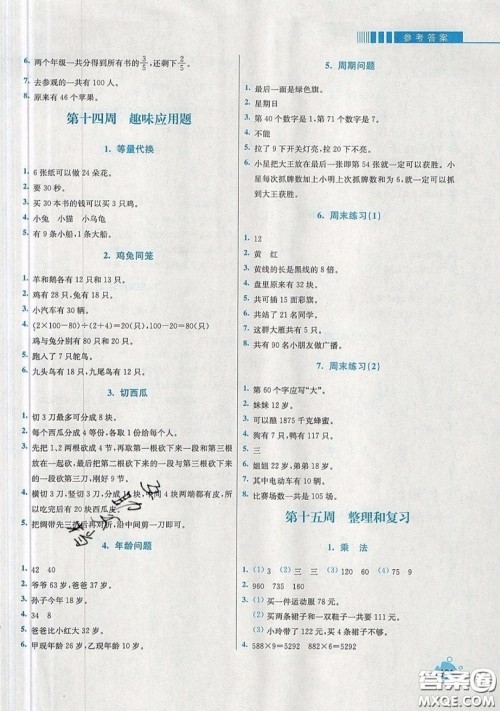 参考答案
6. 两个年级一共分得所有书的3/5,还剩下2/5。
7. 去参观的一共有 100 人。
8. 原来有 46 个苹果。
第十四周 趣味应用题
1. 等量代换
1. 6 张纸可以做 24 朵花。
2. 要 30 秒。
3. 买 30 本书的钱可以买 3 只鸡。
4. 小兔 小猫 小乌龟
5. 有 9 条小船,1 条大船。
2. 鸡兔同笼
1. 羊和鹅各有 12 只和 13 只。
2. 鸡有 28 只,兔有 18 只。
3. 小汽车有 30 辆。
4. (2×100-80)÷(2+4)=20(只) 100-20=80(只)
鸡与兔分别有 80 只和 20 只。
5. 跑入了 7 只鸵鸟。
6. 九头鸟有 12 只,九尾鸟有 12 只。
3. 切西瓜
1. 切 3 刀最多可分成 8 块。
2. 每个西瓜切成 4 等份,各分一份。
3. 先把 1、2 两根砍成 4 节,再取第一根砍下来的一段和第三根
放在一起砍,最后把第二根砍下来的一段与第一根砍下来的
一段和第三根砍下来的一段一起砍。
4. 横切 3 刀,竖切 3 刀,分成 16 块,每 4 块两端都有皮,所
以吃完后有 20 块西瓜皮。
5. 把绸带先三折后再对折,沿中间剪开即可。
4. 年龄问题
1. 42 40
2. 爷爷 63 岁,爸爸 36 岁。
3. 孙子今年 18 岁。
4. 34 8
5. 爸爸比小红大 32 岁。
6. 甲现年 30 岁,乙现年 10 岁。
5. 周期问题
1. 最后一面是绿色旗。
2. 星期日
3. 第 40 个数字是 1,第 71 个数字是 7。
4. 不能
5. 拉了 9 下开关灯亮,拉了 20 下开关灯不亮。
6. 小星把大王放在最后一张即第 54 张就一定可以获胜。小
星每次抓牌数加上小明上次抓牌数和为 6,就一定可以抓
到大王获胜。
6. 周末练习(1)
1. 12
2. 黄 红
3. 黄线的长是黑线的 8 倍。
4. 盘里原来有 32 块。
5. 共可插 15 面彩旗。
6. 共站进了 21 名同学。
7. 这群大雁共有 25 只。
8. 共有 90 名小朋友做广播。
7. 周末练习(2)
1. 第 60 个字应写“大”。
2. 妹妹 12 岁。
3. 可以酿 1875 千克蜂蜜。
4. 狗有 17 只。
5. 三
6. 姐姐 22 岁,弟弟 14 岁。
7. 其中电动车有 10 辆。
8. 比赛场数一共是 105 场。
第十五周 整理和复习
1. 乘 法
1. (1) 3 (2) 三 三 (3) 120 60 (4) 75 9
2. 960 735 160
3. (1) 买一件运动服 78 元。
(2) 买两条裙子和一双鞋子一共 318 元。
(3) 小玲带了 125 元,买 4 条裙子不够。
4. 588×9=5292 588×9=5292
答案圈
MXQE.COM